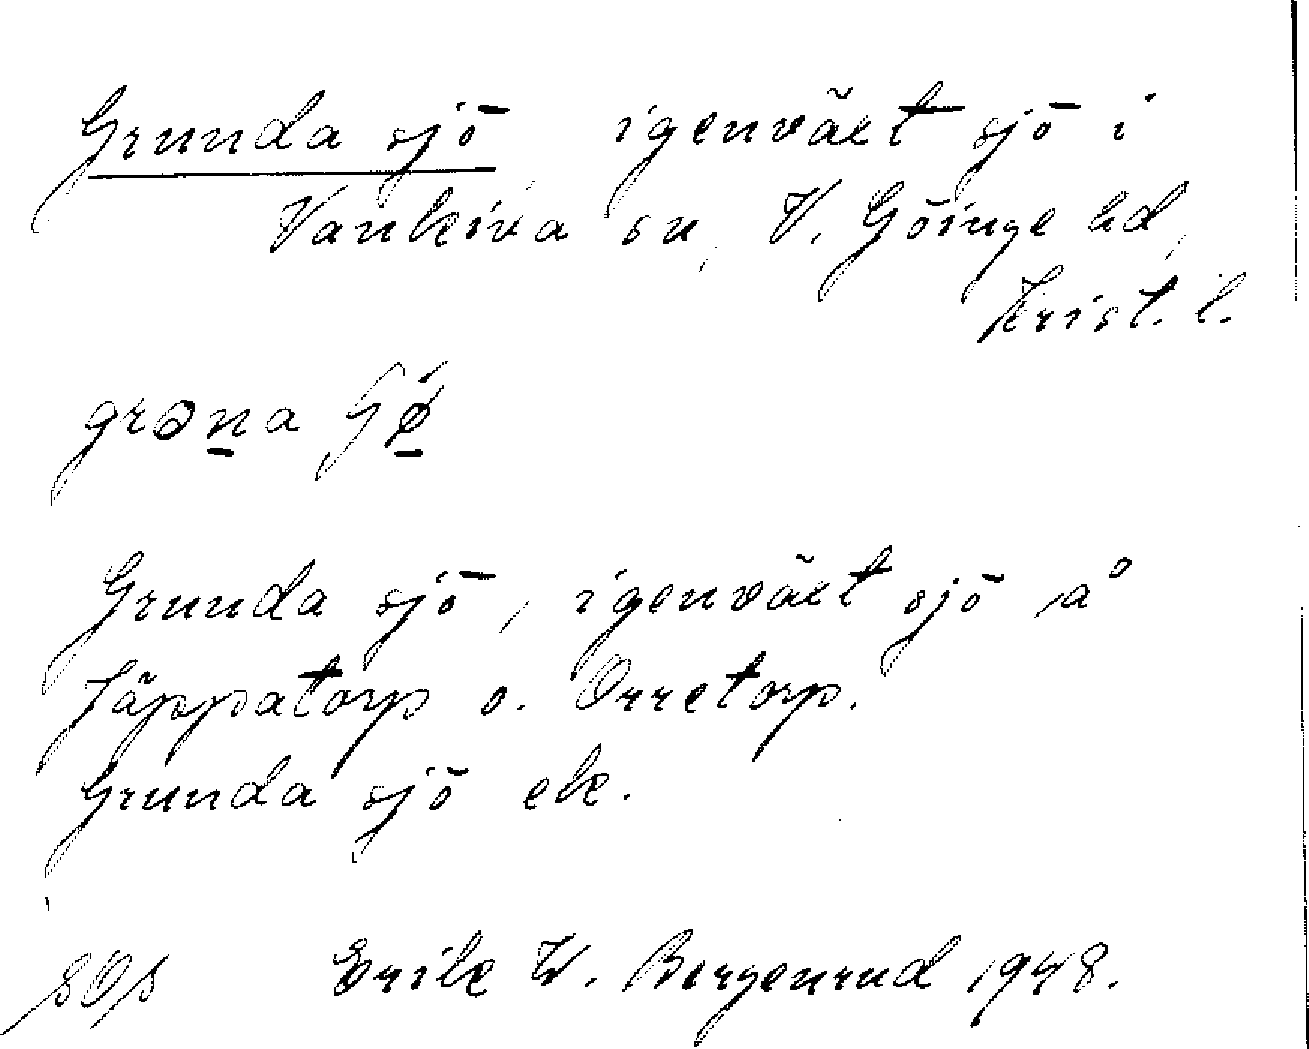 Grunda sjö igenväxt sjö i
Vankiva sn, V. Göinge hd,
Krist. l.
Grunda sjö, igenväxt sjö å
Jäppatorp o. Orretorp.
Grunda sjö ek.
Erik W. Bergenrud 1948.